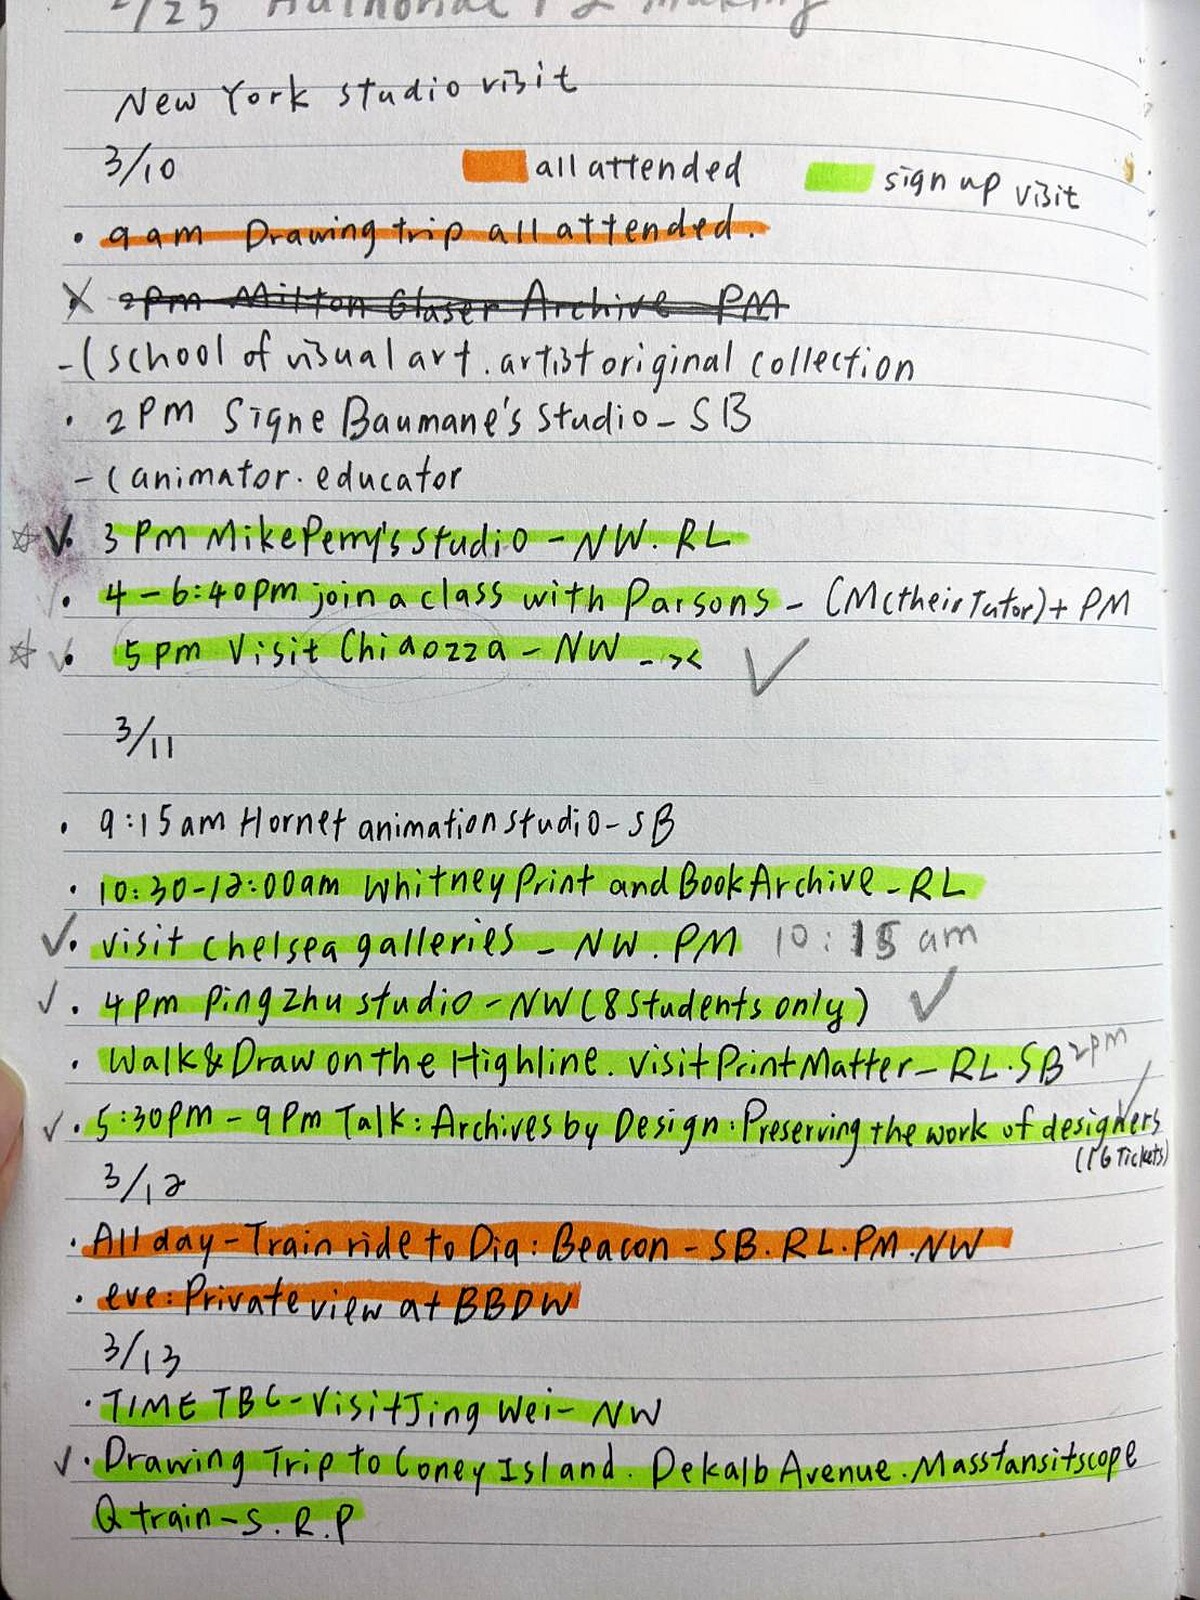 2/25 Authorial P2 making
New York studio visit
3/10
all attended
sign up visit
• 9am Drawing trip all attended.
X 2pm Milton Glaser Archive PM
-(school of visual art. artist original collection
• 2PM Signe Baumane's Studio - SB
-(animator. educator
☆ ✓• 3PM Mike Perry's studio - NW. RL
• 4-6:40pm join a class with Parsons - (Mctheir Tutor) + PM
☆ ✓• 5pm Visit Chiaozza - NW ✓
3/11
• 9:15am Hornet animation studio - SB
• 10:30-12:00am Whitney Print and Book Archive - RL
✓• visit chelsea galleries - NW. PM 10:15 am
✓• 4pm Ping Zhu studio - NW (8 students only) ✓
• Walk & Draw on the Highline. visit Print Matter - RL. SB 2pm
✓• 5:30pm - 9pm Talk: Archives by Design: Preserving the work of designers
(16 Tickets)
3/12
• All day - Train ride to Dia: Beacon - SB. RL. PM. NW
• eve: Private view at BBDW
3/13
• TIME TBC - Visit Jing Wei - NW
✓• Drawing Trip to Coney Island. Dekalb Avenue. Masstansitscope
Q train - S. R. P